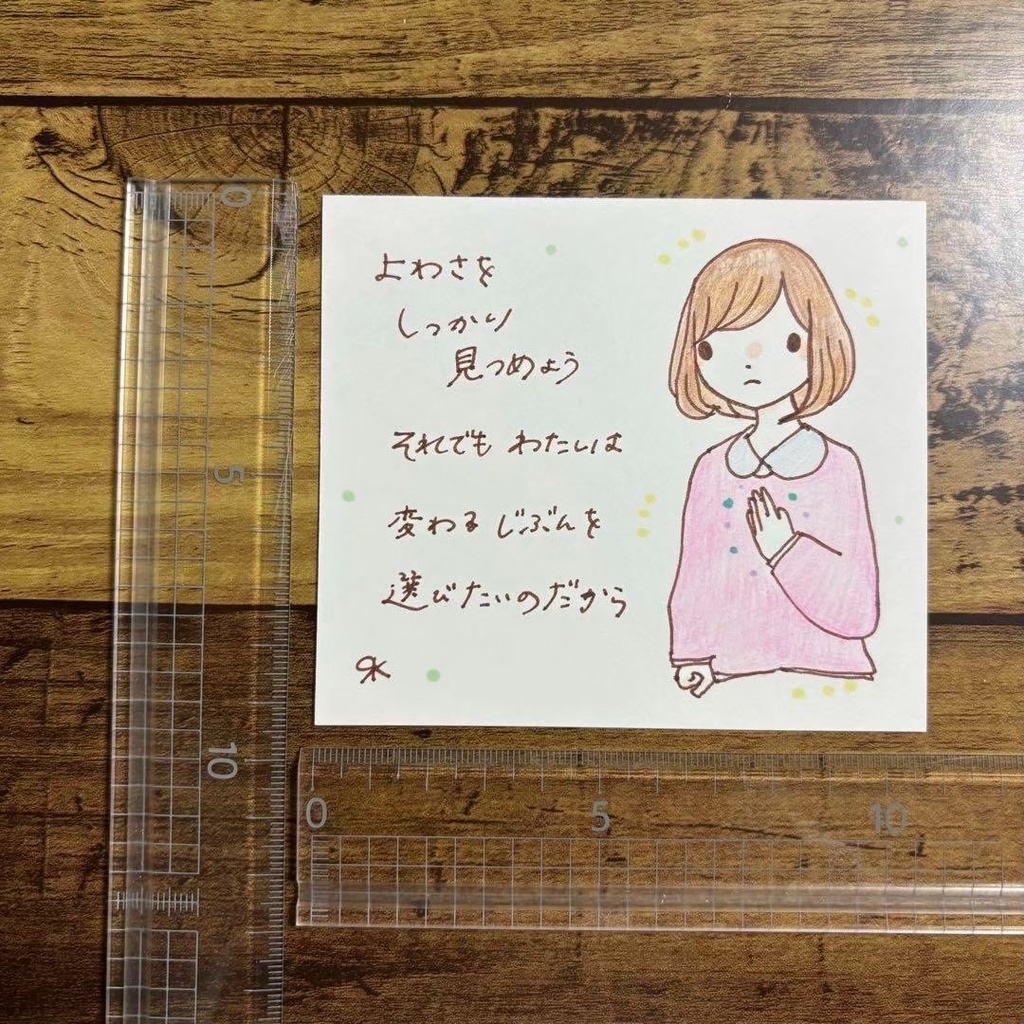 よわさを
しっかり
見つめよう
それでも わたしは
変わる じぶんを
選びたいのだから
0
5
10
0
5
10